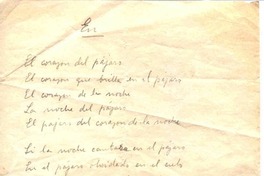 En
El corazon del pájaro
El corazon que brilla en el pajaro
El corazon de la noche
La noche del pájaro
El pajaro del corazon de la noche
Si la noche cantara en el pajaro
En el pajaro olvidado en el cielo